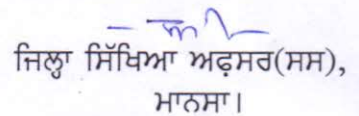 ਜਿਲ੍ਹਾ ਸਿੱਖਿਆ ਅਫ਼ਸਰ(ਸਸ),
ਮਾਨਸਾ।